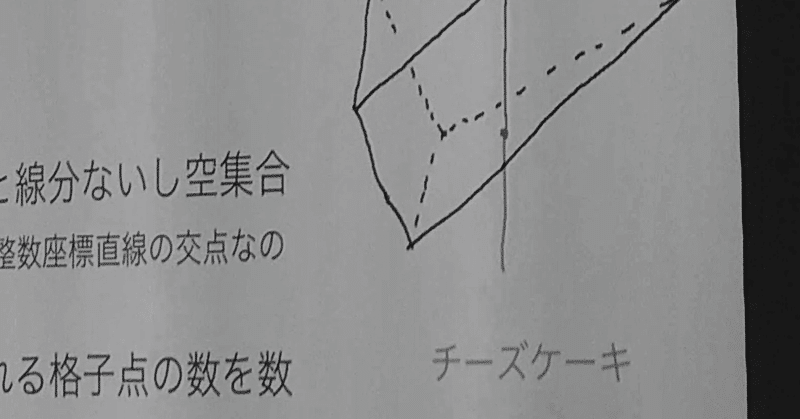 と線分ないし空集合
整数座標直線の交点なの
れる格子点の数を数
チーズケーキ